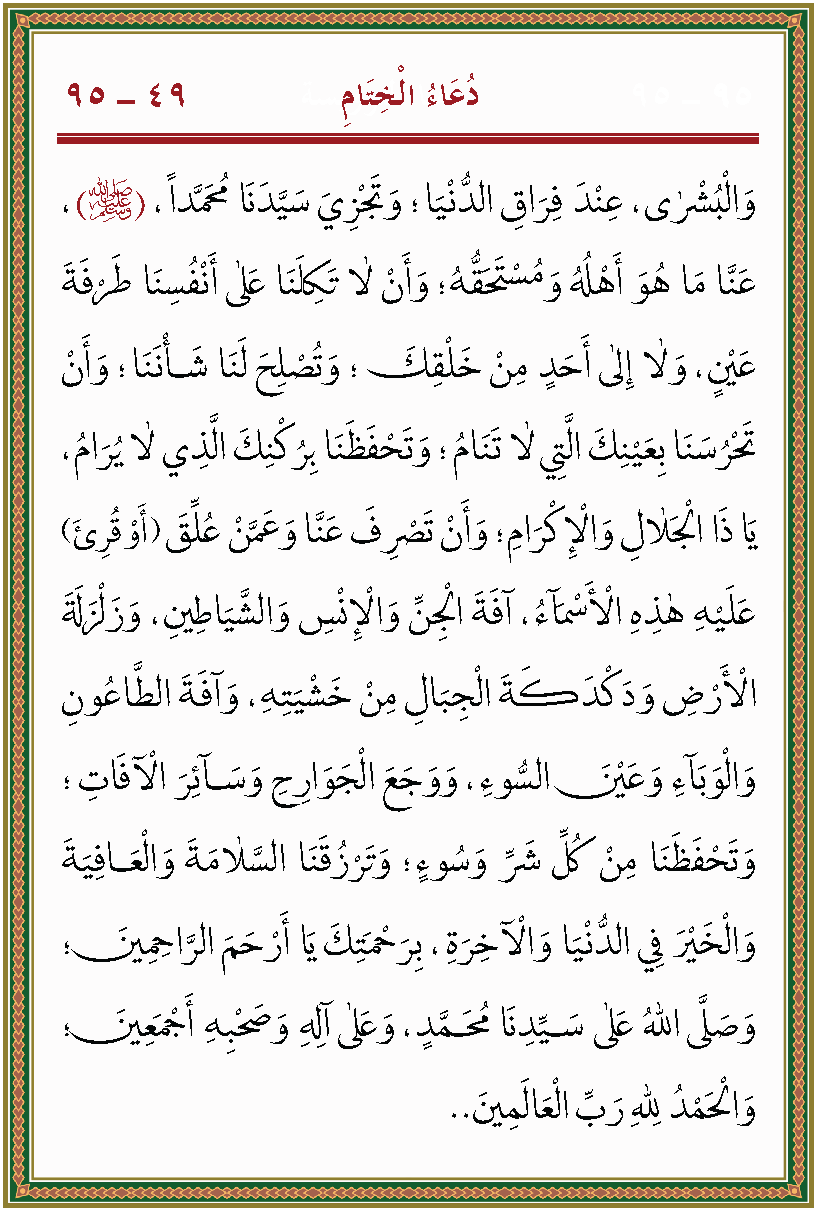 دُعَاءُ الْخِتَامِ ٤٩ – ٩٥
وَالْبُشْرٰى، عِنْدَ فِرَاقِ الدُّنْيَا ؛ وَتَجْزِيَ سَيِّدَنَا مُحَمَّداً ، (ﷺ) ،
عَنَّا مَا هُوَ أَهْلُهُ وَمُسْتَحَقُّهُ ؛ وَأَنْ لاٰ تَكِلَنَا عَلٰى أَنْفُسِنَا طَرْفَةَ
عَيْنٍ، وَلاٰ إِلٰى أَحَدٍ مِنْ خَلْقِكَ ؛ وَتُصْلِحَ لَنَا شَأْنَنَا ؛ وَأَنْ
تَحْرُسَنَا بِعَيْنِكَ الَّتِي لاٰ تَنَامُ ؛ وَتَحْفَظَنَا بِرُكْنِكَ الَّذِي لاٰ يُرَامُ،
يَا ذَا الْجَلاٰلِ وَالْإِكْرَامِ ؛ وَأَنْ تَصْرِفَ عَنَّا وَعَمَّنْ عُلِّقَ (أَوْ قُرِئَ)
عَلَيْهِ هٰذِهِ الْأَسْمَآءُ ، آفَةَ الْجِنِّ وَالْإِنْسِ وَالشَّيَاطِينِ ، وَزَلْزَلَةَ
الْأَرْضِ وَدَكْدَكَةَ الْجِبَالِ مِنْ خَشْيَتِهِ ، وَآفَةَ الطَّاعُونِ
وَالْوَبَآءِ وَعَيْنَ السُّوءِ ، وَوَجَعَ الْجَوَارِحِ وَسَآئِرَ الْآفَاتِ ؛
وَتَحْفَظَنَا مِنْ كُلِّ شَرٍّ وَسُوءٍ ؛ وَتَرْزُقَنَا السَّلاٰمَةَ وَالْعَافِيَةَ
وَالْخَيْرَ فِي الدُّنْيَا وَالْآخِرَةِ ، بِرَحْمَتِكَ يَا أَرْحَمَ الرَّاحِمِينَ ؛
وَصَلَّى اللهُ عَلٰى سَيِّدِنَا مُحَمَّدٍ ، وَعَلٰى آلِهِ وَصَحْبِهِ أَجْمَعِينَ ؛
وَالْحَمْدُ لِلهِ رَبِّ الْعَالَمِينَ..